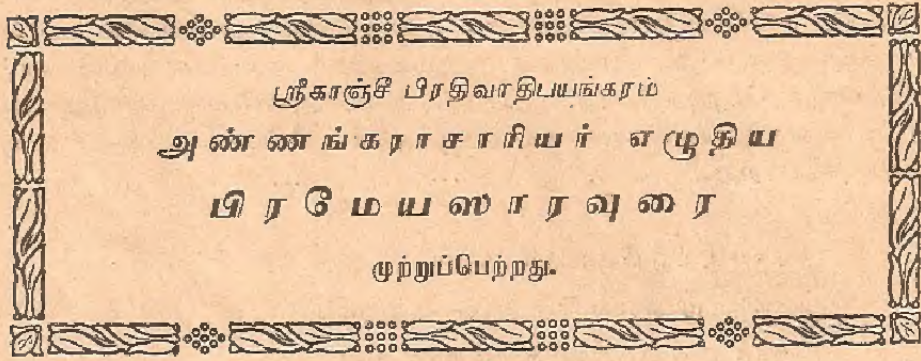 ஸ்ரீகாஞ்சீ பிரதிவாதிபயங்கரம்
அண்ணங்கராசாரியர் எழுதிய
பிரமேயஸாரவுரை
முற்றுப்பெற்றது.